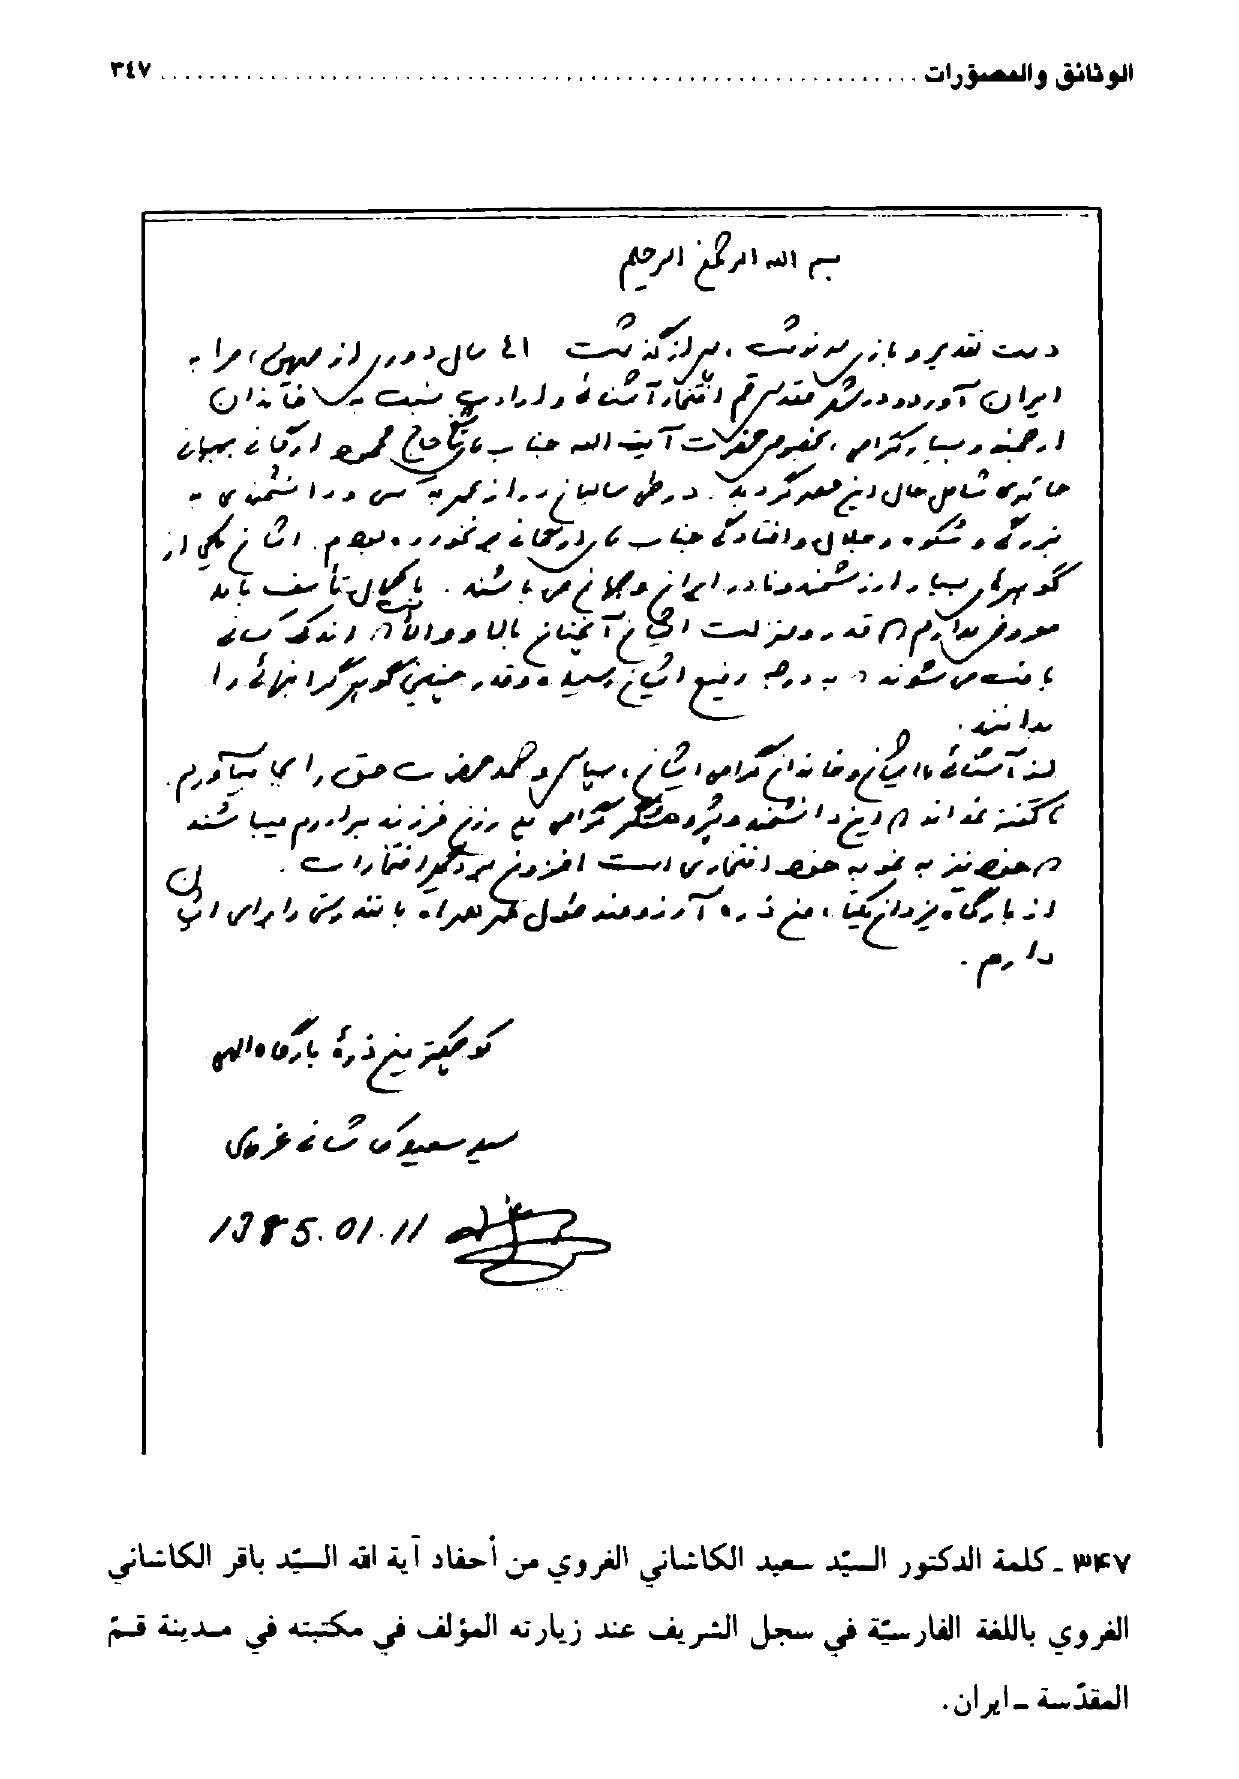 الوثائق والمصوّرات ........................................................ ٣٤٧
بسم الله الرحمن الرحیم
دست تقدیر و بازی سرنوشت، پس از گذشت سال دوری از میهن، مرا به
ایران آورد و در شهر مقدس قم افتخار آشنائی و ارادت نسبت به خاندان
ارجمند و بسیار گرامی، بخصوص حضرت آیت الله جناب حاج محمود ارگانی بهبهانی
حائری شامل حال این حقیر گردید. در طی سالیان دراز عمر به کسی و دانشمندی به
بزرگی و شکوه و جلال و افتادگی جناب ارگانی بر نخورده بودم. ایشان یکی از
گوهرهای بسیار ارزشمند و نادر ایران و جهان می باشند. با کمال تأسف باید
معروض بدارم که قدر و منزلت ایشان آنچنان بالا و والاست که اندک کسانی
یافت می شوند که به درجه رفیع ایشان رسیده و قدر چنین گوهر گرانبهائی را
بدانند.
از آشنائی با ایشان و خاندان گرامی ایشان، سپاس و حمد حضرت حق را بجا میآورم.
ناگفته نماند که این دانشمند و پژوهشگر گرامی فرزند برادرم میباشند
که خود نیز به نوبه خود افتخاری است افزون بر دیگر افتخارات.
از بارگاه یزدان یکتا، من ذره آرزومند طول عمر همراه با تندرستی را برای ایشان
دارم.
کوچکترین ذرهٔ بارگاه الهی
سید سعید کاشانی غروی
1385.01.11
٣٤٧ ـ كلمة الدكتور السيّد سعيد الكاشاني الغروي من أحفاد آية الله السيّد باقر الكاشاني
الغروي باللغة الفارسيّة في سجل الشريف عند زيارته المؤلف في مكتبته في مدينة قمّ
المقدّسة ـ ايران.